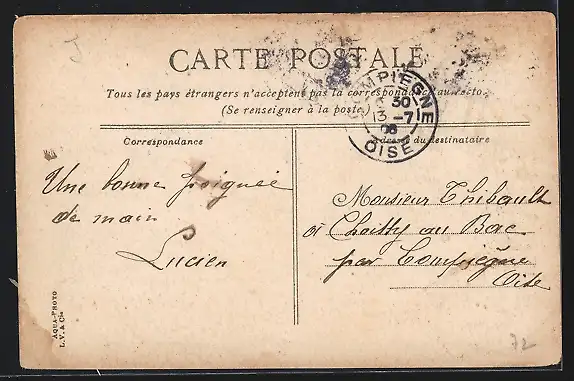 CARTE POSTALE
Tous les pays étrangers n'acceptent pas la correspondance au recto.
(Se renseigner à la poste.)
COMPIEGNE
30
13 -7
08
OISE
Correspondance
Adresse du destinataire
Une bonne poignée
de main
Lucien
Monsieur Thibault
à Choisy au Bac
par Compiègne
Oise
AQUA-PHOTO
L.V. & Cie
72